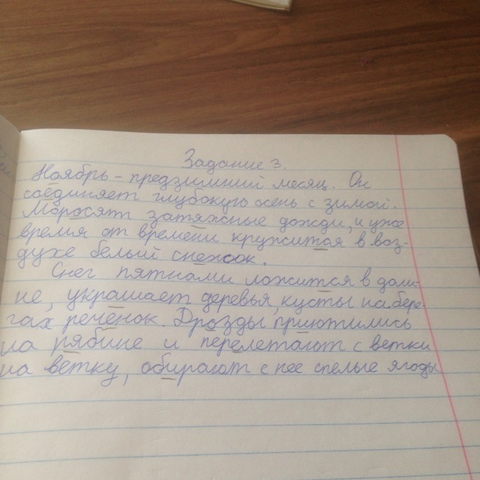 Задание 3.
Ноябрь - предзимний месяц. Он
соединяет глубокую осень с зимой.
Моросят затяжные дожди, и уже
время от времени кружится в воз-
духе белый снежок.
Снег пятнами ложится в доли-
не, украшает деревья, кусты на бере-
гах речёнок. Дрозды приютились
на рябине и перелетают с ветки
на ветку, обирают с нее спелые ягоды